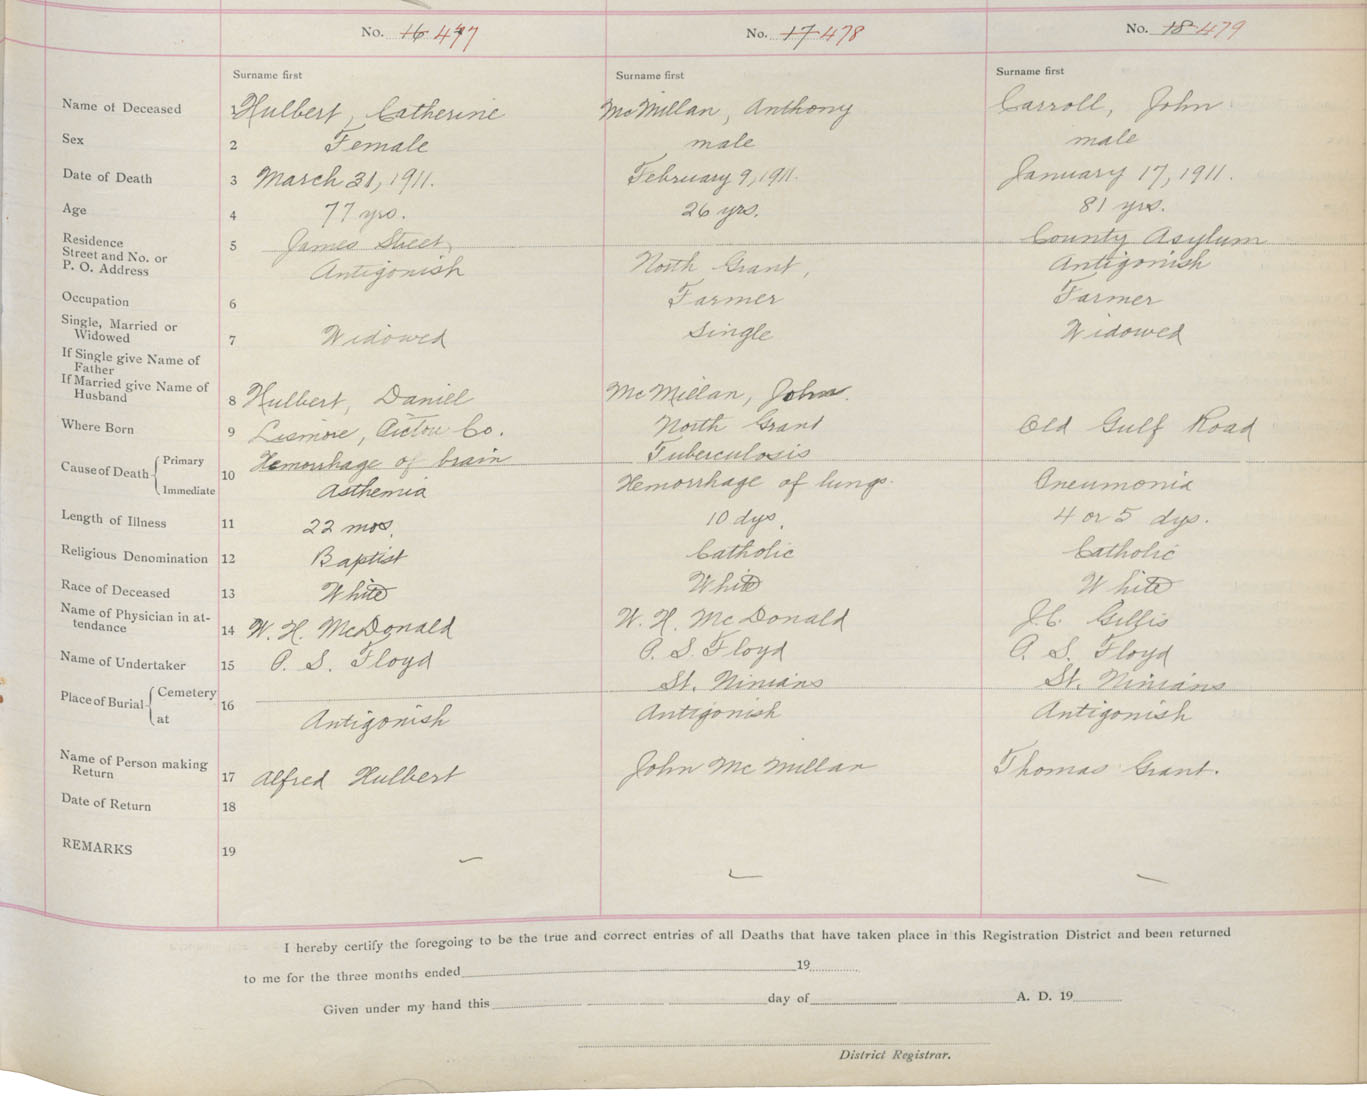 No. 16 477 No. 17 478 No. 18 479
Surname first Surname first Surname first
Name of Deceased 1 Hulbert, Catherine McMillan, Anthony Carroll, John
Sex 2 Female male male
Date of Death 3 March 31, 1911. February 9, 1911. January 17, 1911.
Age 4 77 yrs. 26 yrs. 81 yrs.
Residence 5 James Street, County Asylum
Street and No. or
P. O. Address Antigonish North Grant, Antigonish
Occupation 6 Farmer Farmer
Single, Married or
Widowed 7 Widowed Single Widowed
If Single give Name of
Father
If Married give Name of
Husband 8 Hulbert, Daniel McMillan, John.
Where Born 9 Lismore, Pictou Co. North Grant Old Gulf Road
Cause of Death Primary 10 Hemorrhage of brain Tuberculosis
Immediate Asthemia Hemorrhage of lungs. Pneumonia
Length of Illness 11 22 mos. 10 dys. 4 or 5 dys.
Religious Denomination 12 Baptist Catholic Catholic
Race of Deceased 13 White White White
Name of Physician in at-
tendance 14 W. H. McDonald W. H. McDonald J. C. Gillis
Name of Undertaker 15 P. S. Floyd P. S. Floyd P. S. Floyd
Place of Burial Cemetery 16 St. Ninians St. Ninians
at Antigonish Antigonish Antigonish
Name of Person making
Return 17 Alfred Hulbert John McMillan Thomas Grant.
Date of Return 18
REMARKS 19
I hereby certify the foregoing to be the true and correct entries of all Deaths that have taken place in this Registration District and been returned
to me for the three months ended 19
Given under my hand this day of A. D. 19
District Registrar.